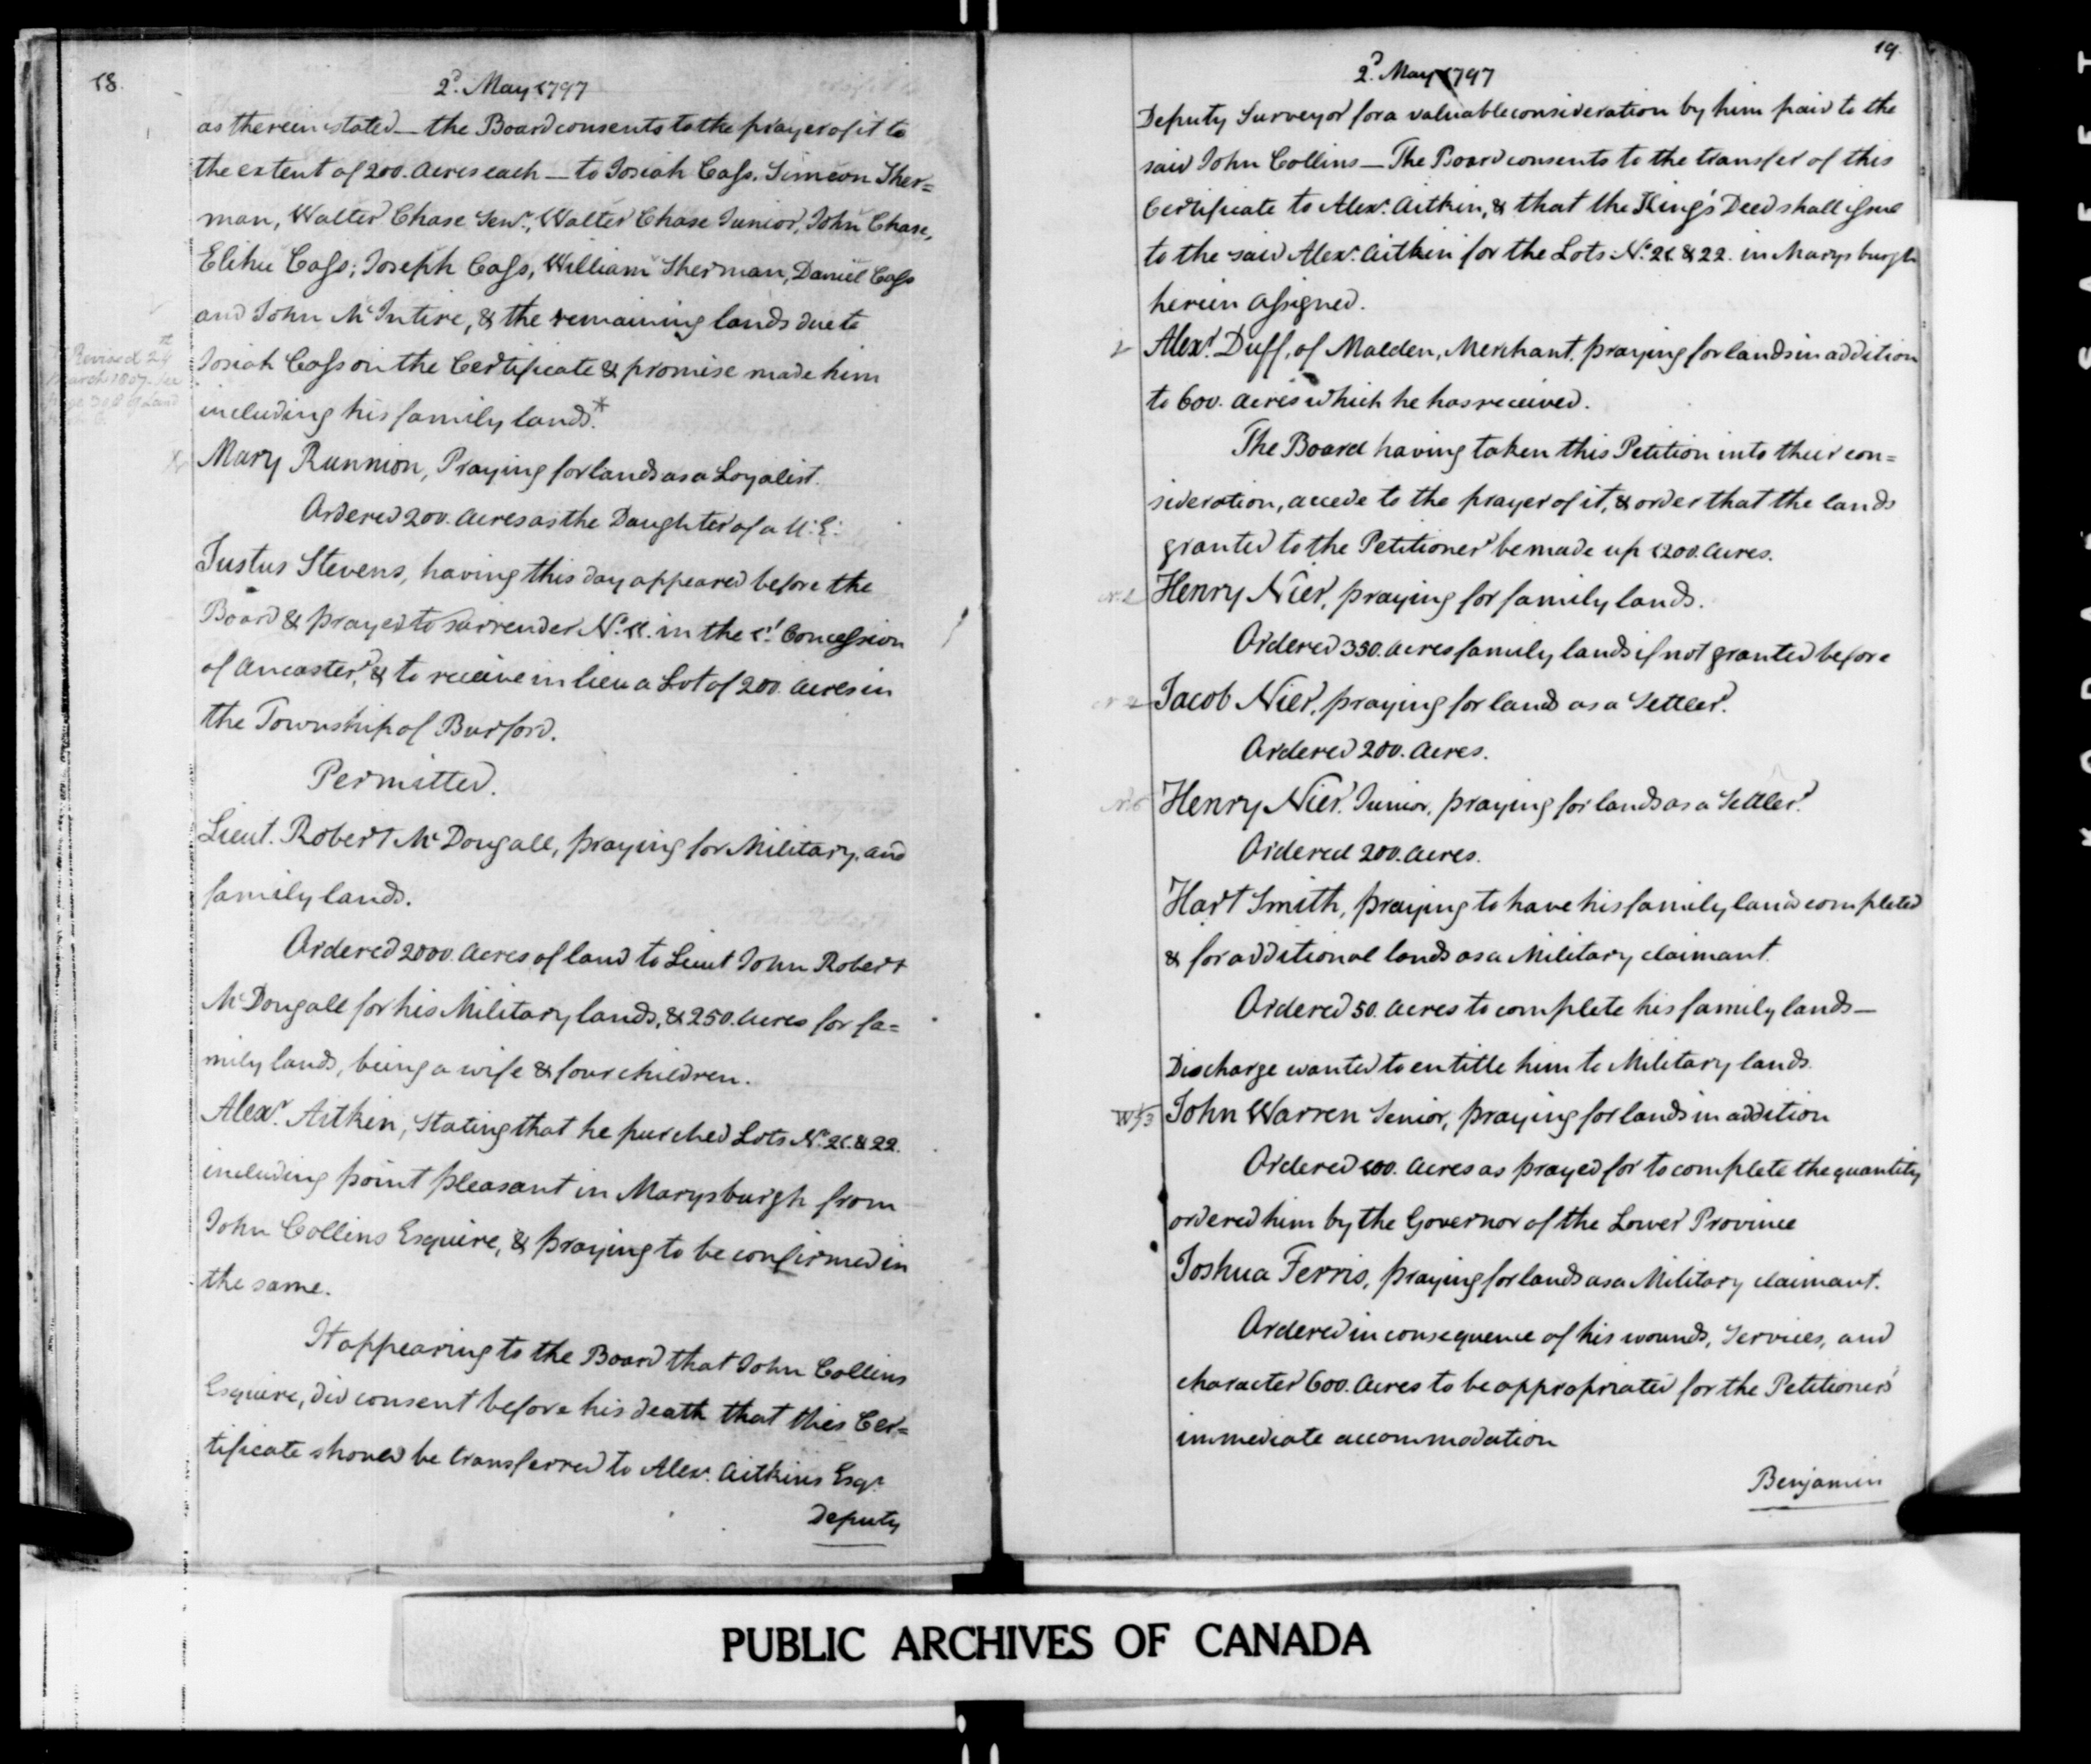 18.
2d. May 1797
as therein stated — the Board consents to the prayer of it to
the extent of 200. Acres each — to Josiah Cass, Simeon Sher=
man, Walter Chase Senr., Walter Chase Junior, John Chase,
Elihu Cass, Joseph Cass, William Sherman, Daniel Cass
and John Mc Intire, & the remaining lands due to
Josiah Cass on the Certificate & promise made him
including his family lands.*
Revised 24th
March 1807. See
Mary Runnion, Praying for lands as a Loyalist.
Ordered 200. Acres as the Daughter of a U: E:
Justus Stevens, having this day appeared before the
Board & prayed to surrender No. 11. in the 1st. Concession
of Ancaster, & to receive in lieu a Lot of 200. Acres in
the Township of Burford.
Permitted.
Lieut. Robert Mc Dougall, praying for Military, and
family lands.
Ordered 2000. Acres of land to Lieut John Robert
Mc Dougall for his Military lands, & 250. Acres for fa=
mily lands, being a wife & four children.
Alexr. Aitkin, Stating that he purched Lots No. 21. & 22.
including point pleasant in Marysburgh from
John Collins Esquire, & praying to be confirmed in
the same.
It appearing to the Board that John Collins
Esquire, did consent before his death that this Cer=
tificate should be transferred to Alexr. Aitkins Esqr.
Deputy
19.
2d. May 1797
Deputy Surveyor for a valuable consideration by him paid to the
said John Collins — The Board consents to the transfer of this
Certificate to Alexr. Aitkin, & that the King's Deed shall issue
to the said Alexr. Aitkin for the Lots No. 21. & 22. in Marysburgh
herein assigned.
Alexr. Duff, of Malden, Merchant, praying for lands in addition
to 600. Acres which he has received.
The Board having taken this Petition into their con=
sideration, accede to the prayer of it, & order that the lands
granted to the Petitioner be made up 1200. Acres.
Henry Nier, praying for family lands.
Ordered 350. Acres family lands if not granted before
Jacob Nier, praying for lands as a Settler.
Ordered 200. Acres.
Henry Nier, Junior, praying for lands as a Settler.
Ordered 200. Acres.
Hart Smith, praying to have his family lands completed
& for additional lands as a Military claimant.
Ordered 50. Acres to complete his family lands —
Discharge wanted to entitle him to Military lands.
W/3 John Warren Senior, praying for lands in addition
Ordered 100. Acres as prayed for to complete the quantity
ordered him by the Governor of the Lower Province
Joshua Ferris, praying for lands as a Military claimant.
Ordered in consequence of his wounds, Services, and
character 600. Acres to be appropriated for the Petitioner's
immediate accommodation
Benjamin
PUBLIC ARCHIVES OF CANADA